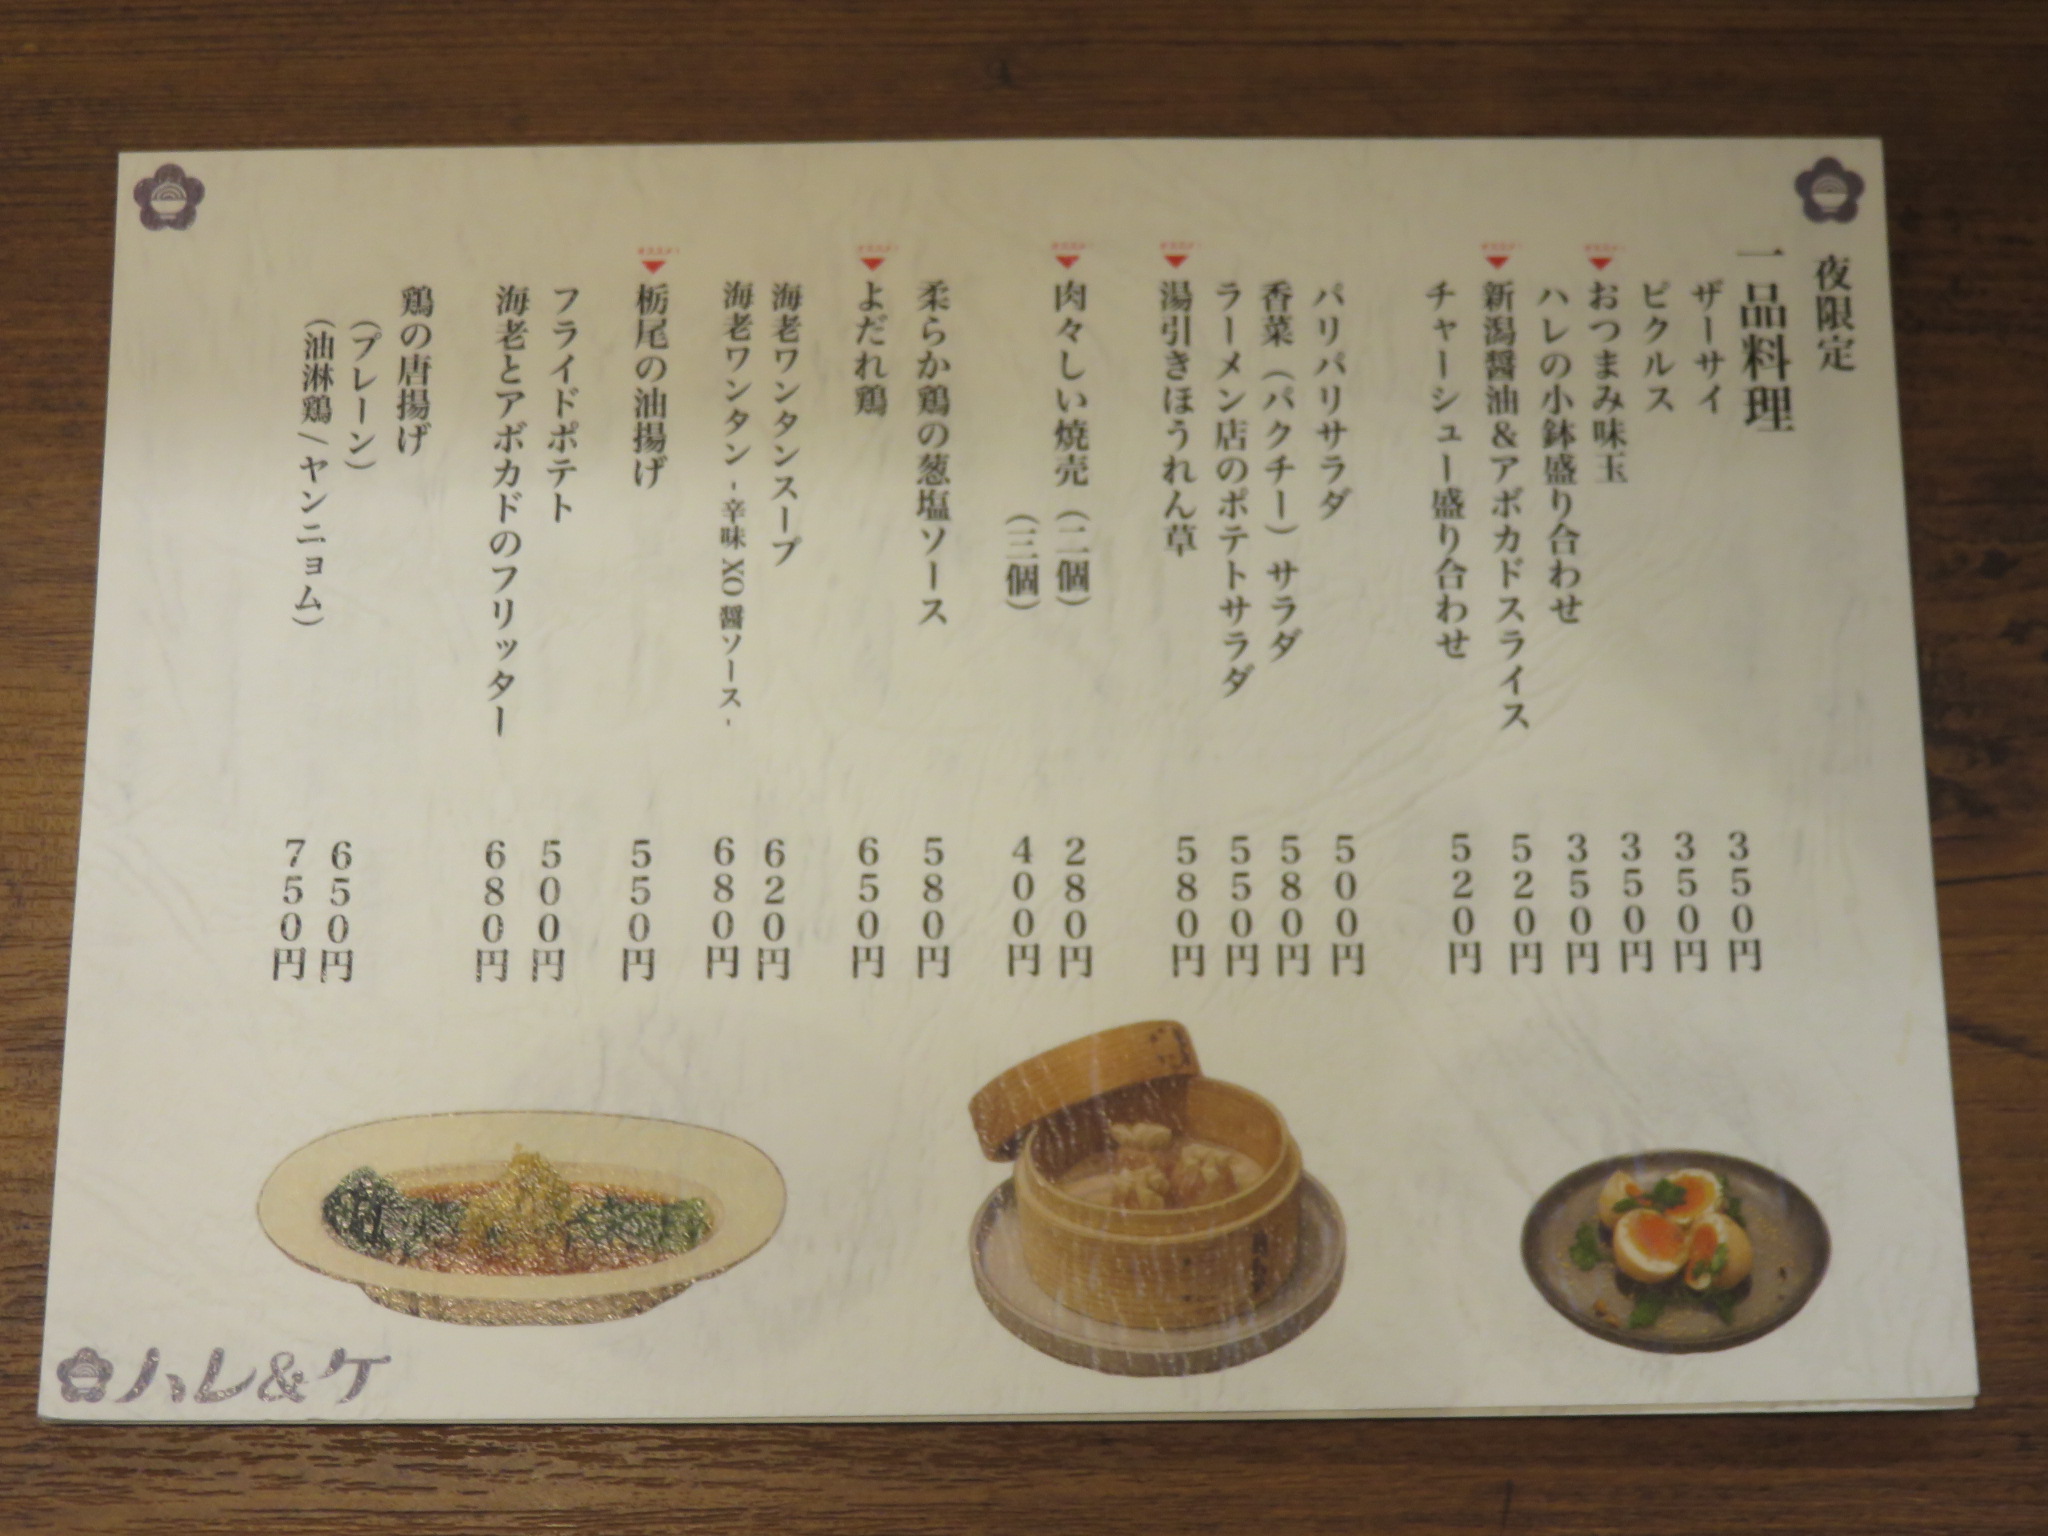 夜限定
一品料理
ザーサイ 350円
ピクルス 350円
おつまみ味玉 350円
ハレの小鉢盛り合わせ 350円
新潟醤油&アボカドスライス 520円
チャーシュー盛り合わせ 520円
パリパリサラダ 500円
香菜(パクチー)サラダ 580円
ラーメン店のポテトサラダ 550円
湯引きほうれん草 580円
肉々しい焼売(二個) 280円
(三個) 400円
柔らか鶏の葱塩ソース 580円
よだれ鶏 650円
海老ワンタンスープ 620円
海老ワンタン - 辛味 XO 醤ソース - 680円
栃尾の油揚げ 550円
フライドポテト 500円
海老とアボカドのフリッター 680円
鶏の唐揚げ
(プレーン) 650円
(油淋鶏/ヤンニョム) 750円
ハレ&ケ